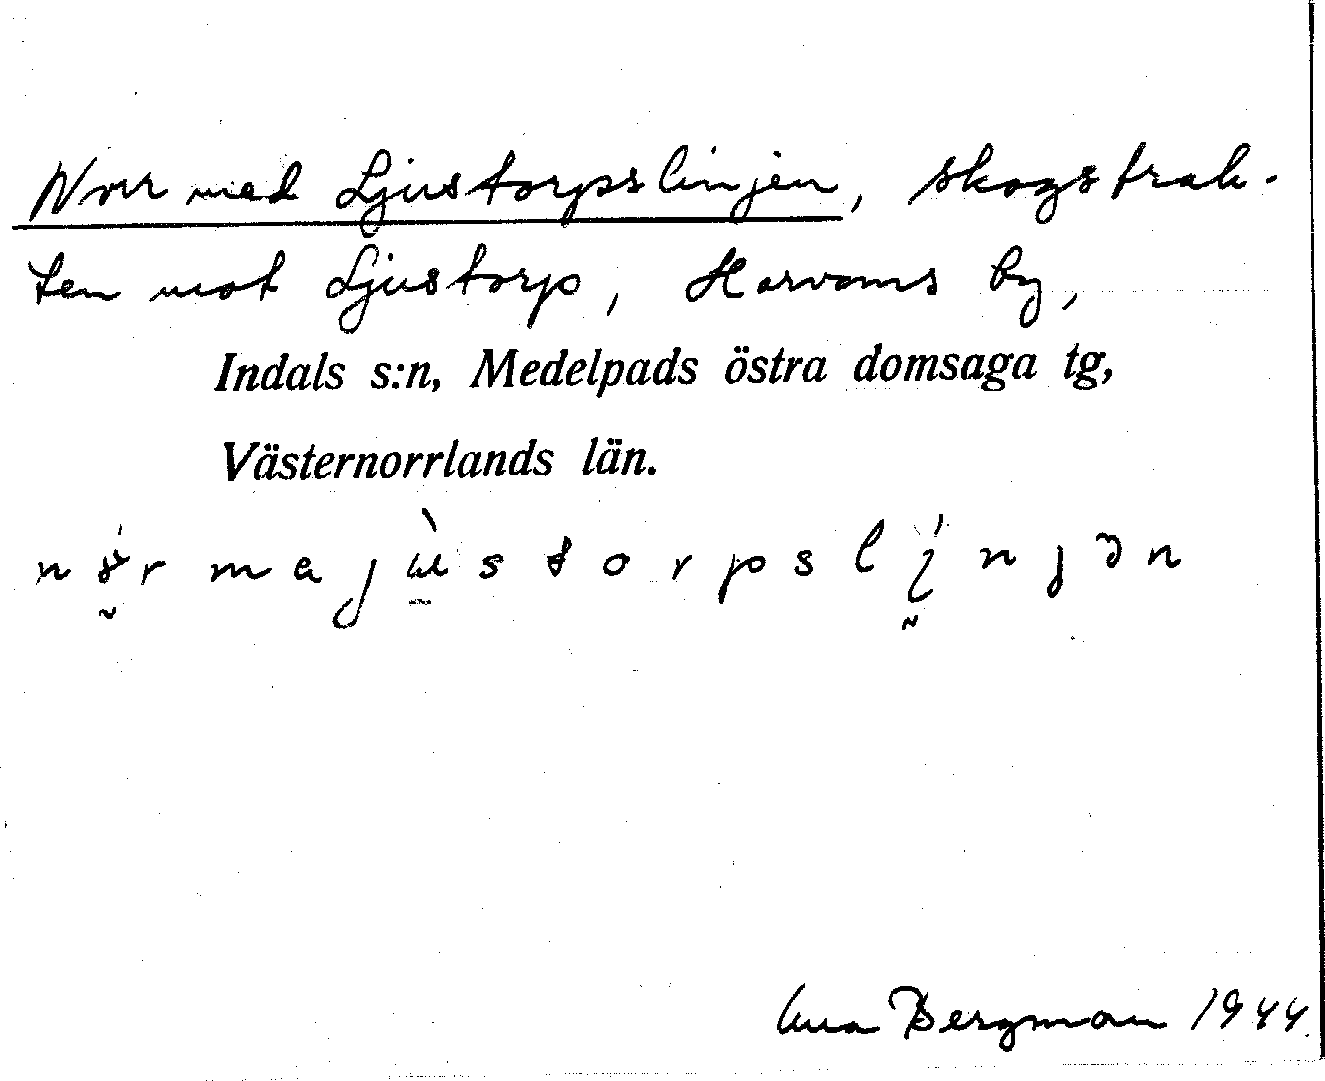 Norr med Ljustorpslinjen, skogstrak-
ten mot Ljustorp, Harvoms by,
Indals s:n, Medelpads östra domsaga tg,
Västernorrlands län.
Bergman 1944